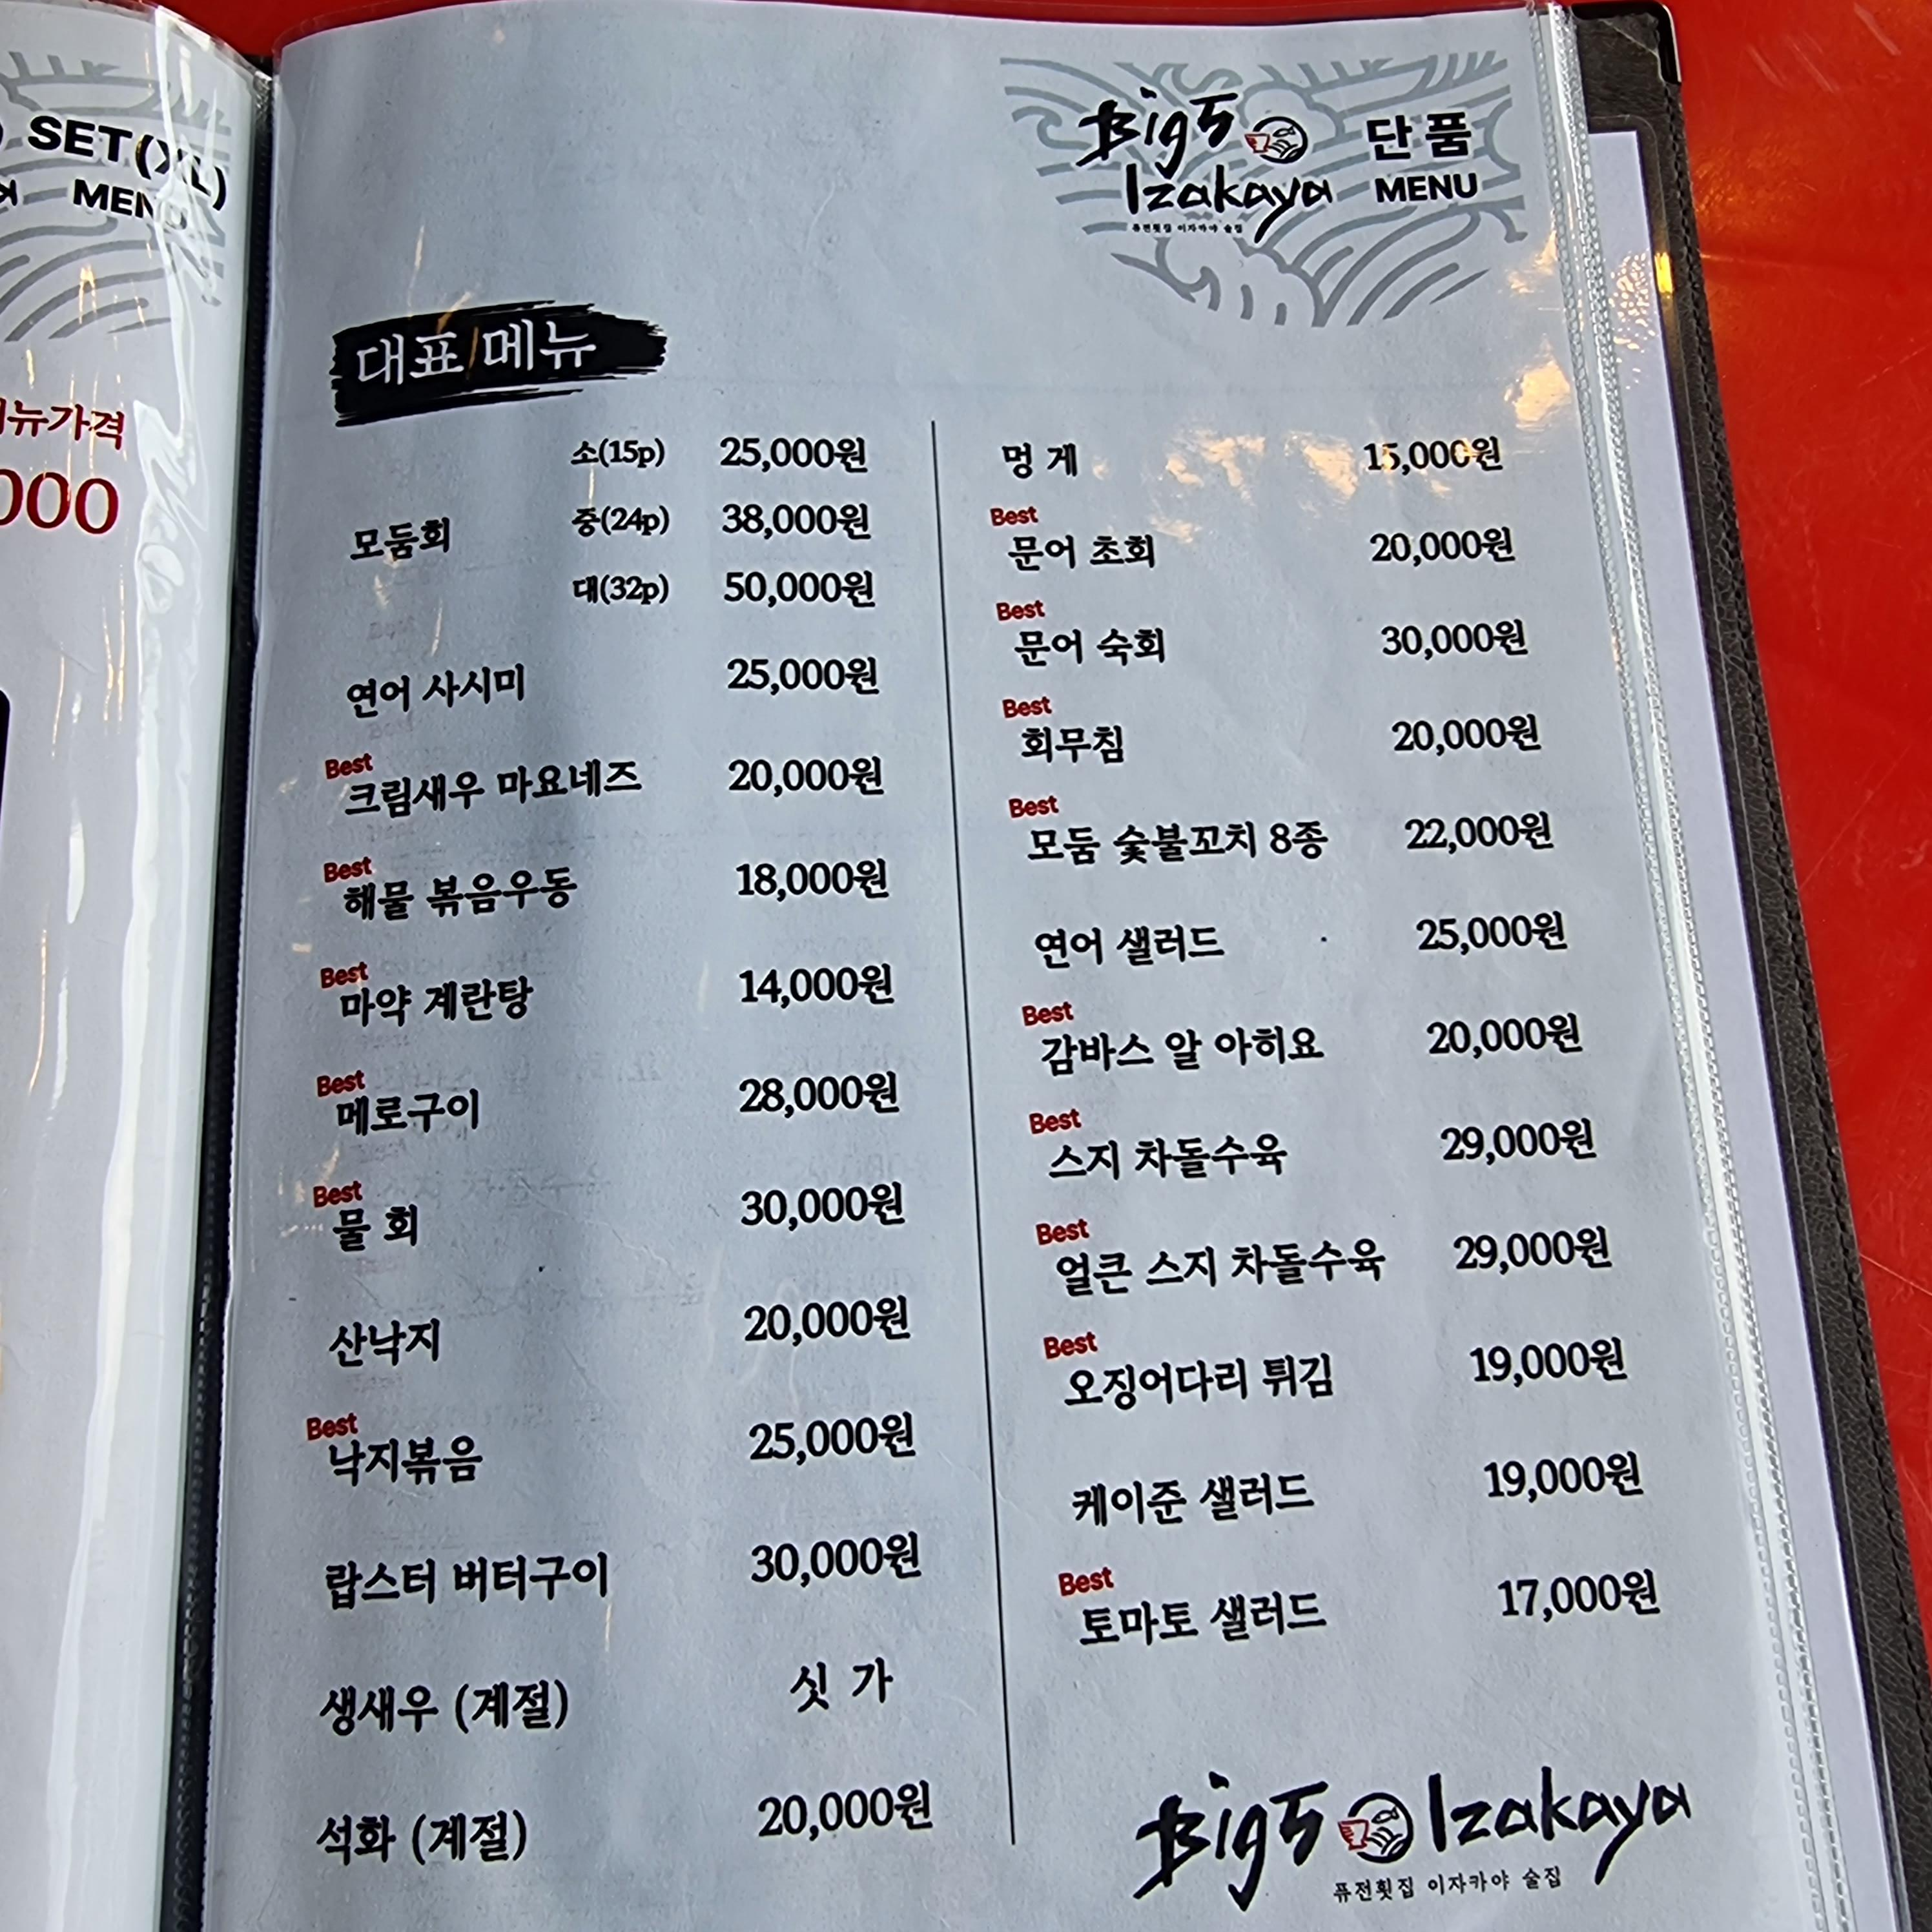 SET(XL)
MENU
뉴가격
000
Big5 Izakaya
퓨전횟집 이자카야 술집
단품
MENU
대표 메뉴
모둠회
소(15p) 25,000원
중(24p) 38,000원
대(32p) 50,000원
연어 사시미 25,000원
Best
크림새우 마요네즈 20,000원
Best
해물 볶음우동 18,000원
Best
마약 계란탕 14,000원
Best
메로구이 28,000원
Best
물 회 30,000원
산낙지 20,000원
Best
낙지볶음 25,000원
랍스터 버터구이 30,000원
생새우 (계절) 싯 가
석화 (계절) 20,000원
멍 게 15,000원
Best
문어 초회 20,000원
Best
문어 숙회 30,000원
Best
회무침 20,000원
Best
모둠 숯불꼬치 8종 22,000원
연어 샐러드 25,000원
Best
감바스 알 아히요 20,000원
Best
스지 차돌수육 29,000원
Best
얼큰 스지 차돌수육 29,000원
Best
오징어다리 튀김 19,000원
케이준 샐러드 19,000원
Best
토마토 샐러드 17,000원
Big5 Izakaya
퓨전횟집 이자카야 술집